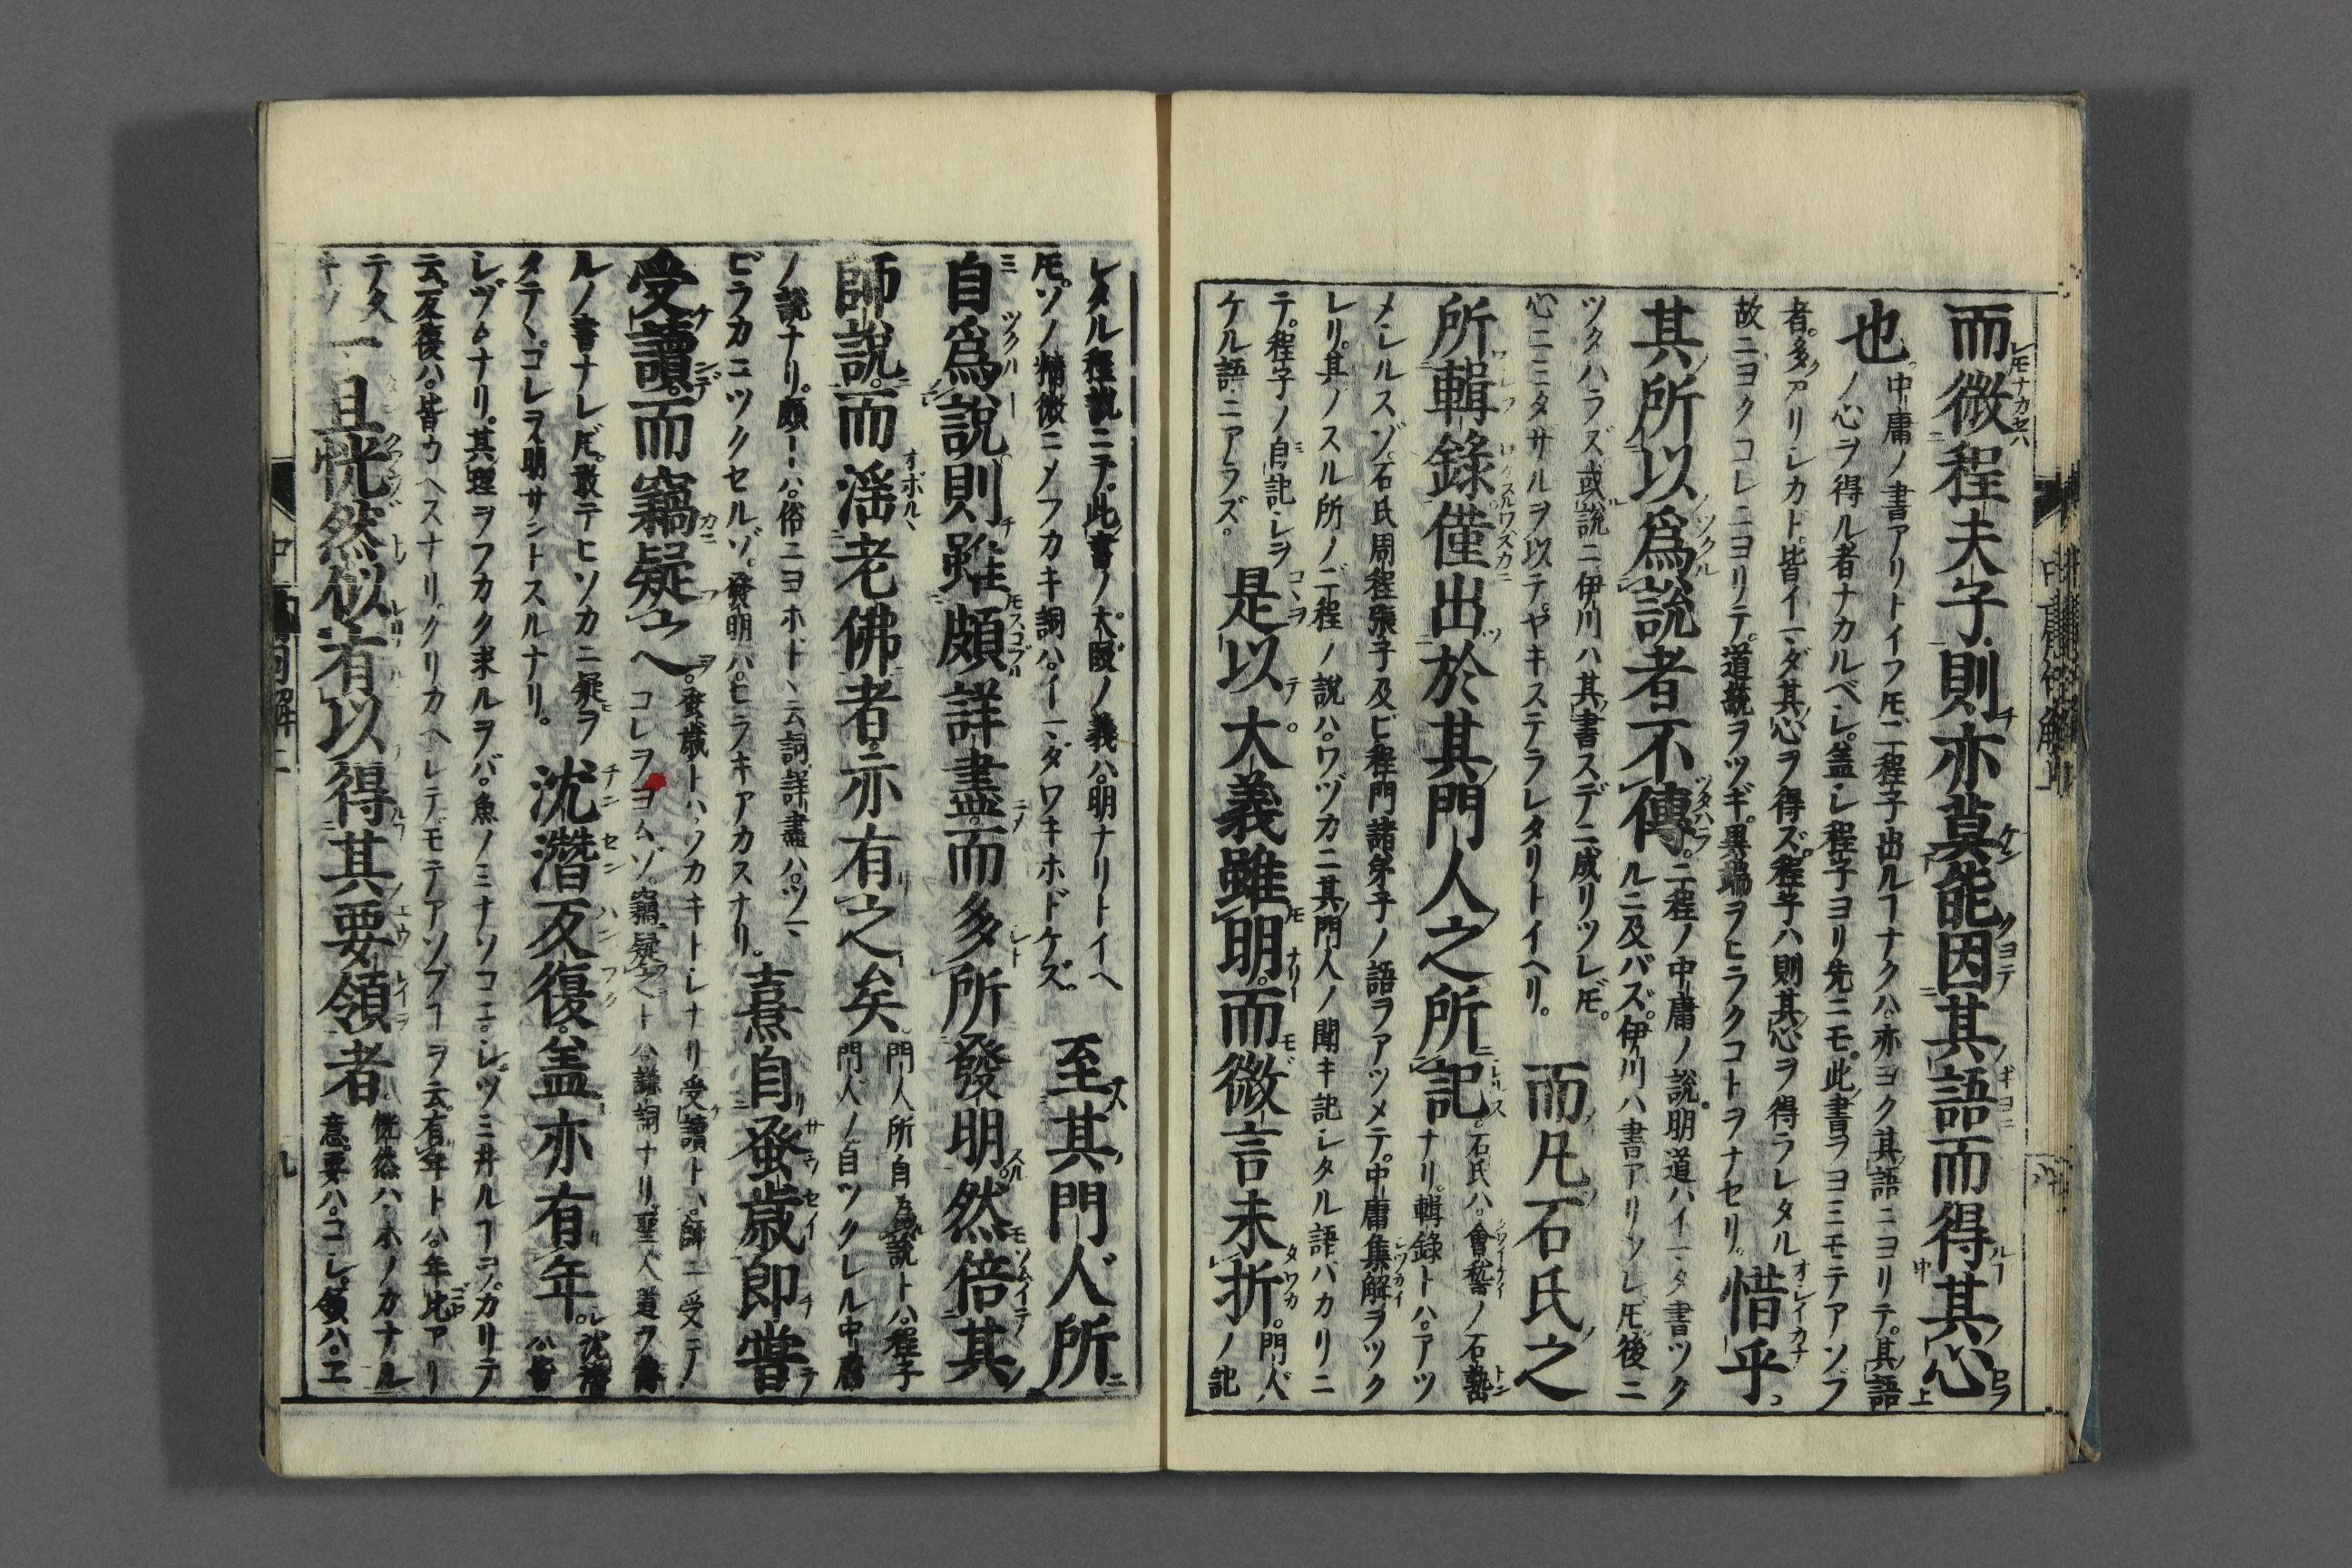 而微程夫子則亦莫能因其語而得其心
也。中庸ノ書アリトイフ𪜈。二程子出ルヿナクハ。亦ヨク其語ニヨリテ。其語
ノ心ヲ得ル者ナカルベシ。蓋シ程子ヨリ先ニモ。此書ヲヨミモテアソブ
者。多アリシカド。皆イマダ其心ヲ得ズ。程子ハ則其心ヲ得ラレタル
故ニ。ヨクコレニヨリテ。道統ヲツギ。異端ヲヒラクコトヲナセリ。惜乎。
其所以爲説者不傳。二程ノ中庸ノ説。明道ハイマダ書ツク
ルニ及バズ。伊川ハ書アリシレ𪜈。後ニ
ツタハラズ。或説ニ伊川ハ其書スデニ成リツレ𪜈。
心ニミタサルヲ以テ。ヤキステラレタリトイヘリ。而凡石氏之
所輯錄僅出於其門人之所記。石氏ハ。會稽ノ石𡼖
ナリ。輯錄トハ。アツ
メシルスゾ。石氏周程張子及ビ程門諸弟子ノ語ヲアツメテ。中庸集解ヲツク
レリ。其ノスル所ノ二程ノ説ハ。ワヅカニ其門人ノ聞キ記シタル語バカリニ
テ。程子ノ自記シヲ
ケル語ニアラズ。是以大義雖明。而微言未析。門人ノ記
シタル程説ニテ。此書ノ大段ノ義ハ。明ナリトイヘ
𪜈。ソノ精微ニメフカキ詞ハ。イマダワキホドケズ。至其門人所
自爲説則雖頗詳盡。而多所發明。然倍其
師説。而淫老佛者。亦有之矣。門人所自爲説トハ。程子
門人ノ自ツクレル中庸
ノ説ナリ。頗ーハ。俗ニヨホドヽ云詞。詳盡ハ。ツマ
ビラカニツクセルゾ。發明ハ。ヒラキアカスナリ。熹自蚤歳即嘗
受讀。而竊疑之。蚤歳トハ。ワカキトシナリ。受讀トハ。師ニ受テ
コレヲヨムゾ。竊疑之トハ。謙詞ナリ。聖人道ヲ傳
ルノ書ナレ𪜈。敢テヒソカニ疑ヲ
タテヽ。コレヲ明サントスルナリ。沈潛反復。蓋亦有年。沈潛
ハ皆
シヅムナリ。其理ヲフカク求ルヲバ。魚ノミナソコニ。シヅミ井ルヿヲ。カリテ
云。反復ハ。皆ウヘスナリ。クリカヘシテ。モテアソブヿヲ云。有年トハ。年比アリ
テタ
キノ一旦恍然似有以得其要領者。恍然ハ。ホノカナル
意。要ハ。コシ。領ハ。エ